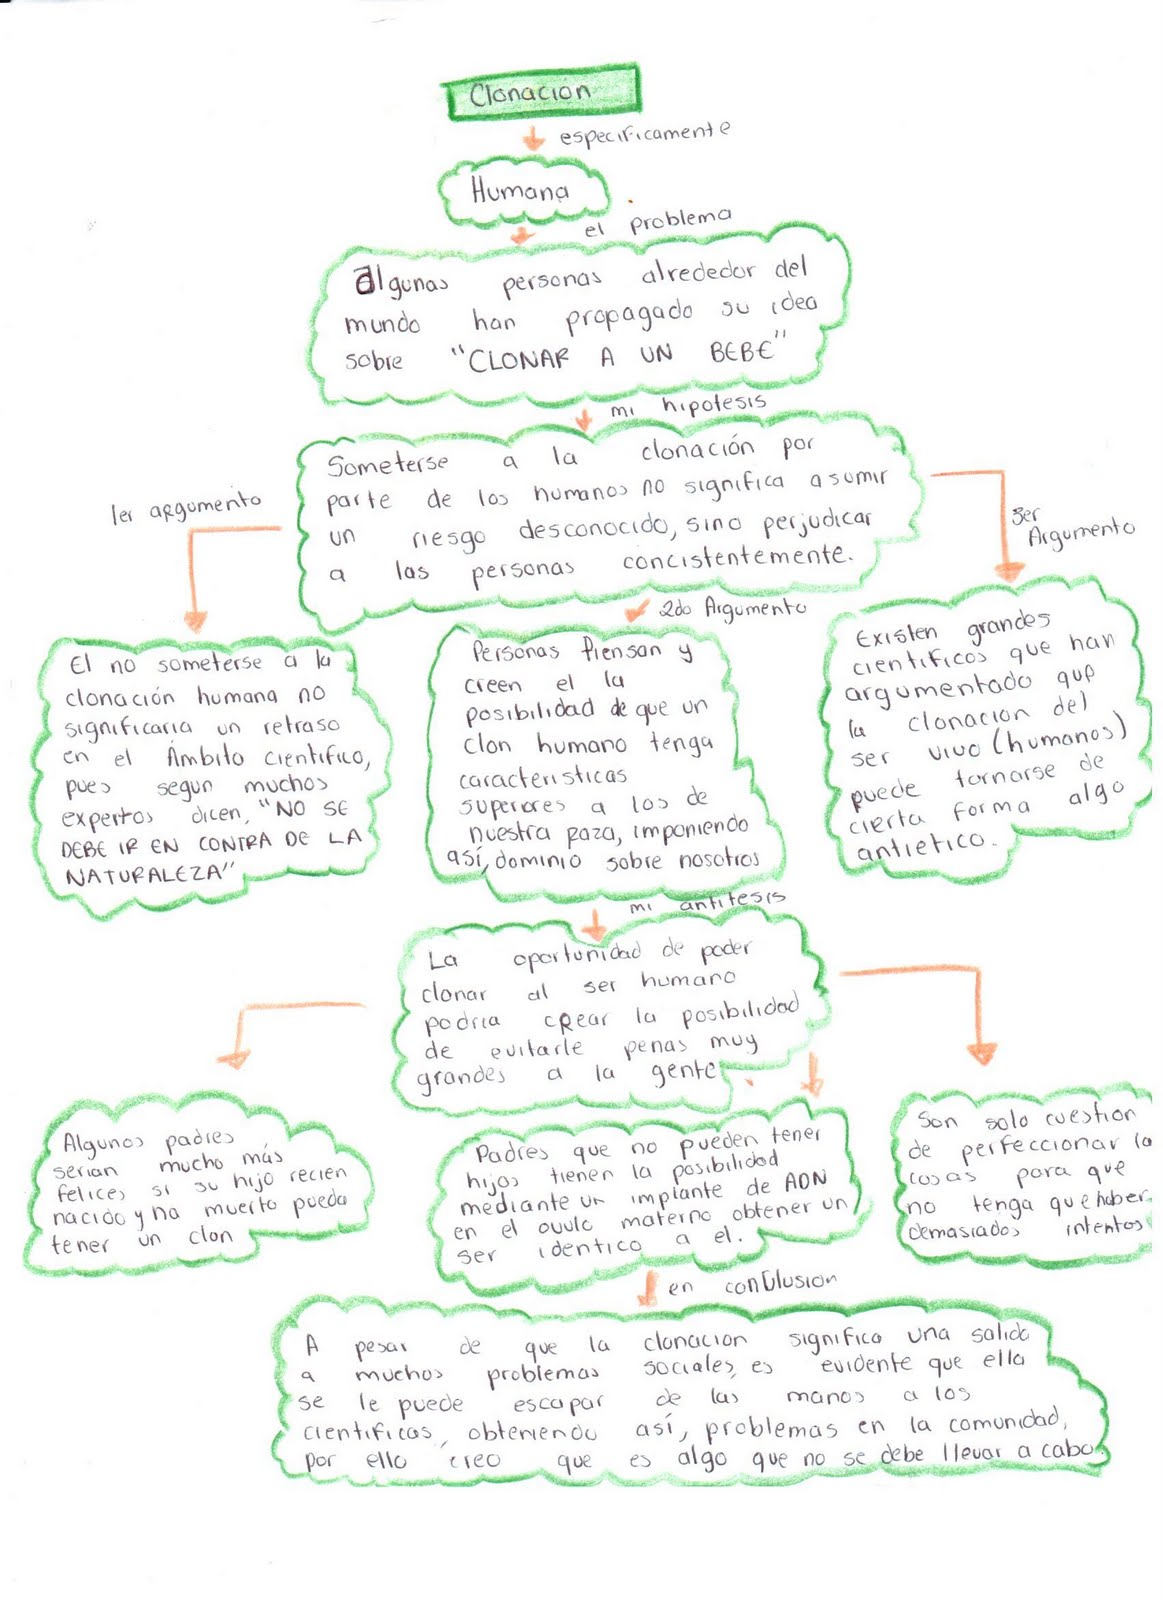 Clonacion
especificamente
Humana
el problema
Algunas personas alrededor del
mundo han propagado su idea
sobre "CLONAR A UN BEBE"
mi hipotesis
Someterse a la clonación por
parte de los humanos no significa asumir
un riesgo desconocido, sino perjudicar
a las personas concistentemente.
1er argumento
El no someterse a la
clonación humana no
significaria un retraso
en el Ámbito cientifico,
pues segun muchos
expertos dicen, "NO SE
DEBE IR EN CONTRA DE LA
NATURALEZA"
2do Argumento
Personas Piensan y
creen el la
posibilidad de que un
clon humano tenga
caracteristicas
superiores a los de
nuestra raza, imponiendo
así, dominio sobre nosotros
3er
Argumento
Existen grandes
cientificos que han
argumentado que
la clonacion del
ser vivo (humanos)
puede tornarse de
cierta forma algo
antietico.
mi antitesis
La oportunidad de poder
clonar al ser humano
podria crear la posibilidad
de evitarle penas muy
grandes a la gente
Algunos padres
serian mucho más
felices si su hijo recien
nacido y ha muerto pueda
tener un clon
Padres que no pueden tener
hijos tienen la posibilidad
mediante un implante de ADN
en el ovulo materno obtener un
ser identico a el.
Son solo cuestion
de perfeccionar la
cosas para que
no tenga que haber
demasiados intentos
en conclusion
A pesar de que la clonacion significa una salida
a muchos problemas sociales, es evidente que ella
se le puede escapar de las manos a los
cientificos, obteniendo así, problemas en la comunidad,
por ello creo que es algo que no se debe llevar a cabo.